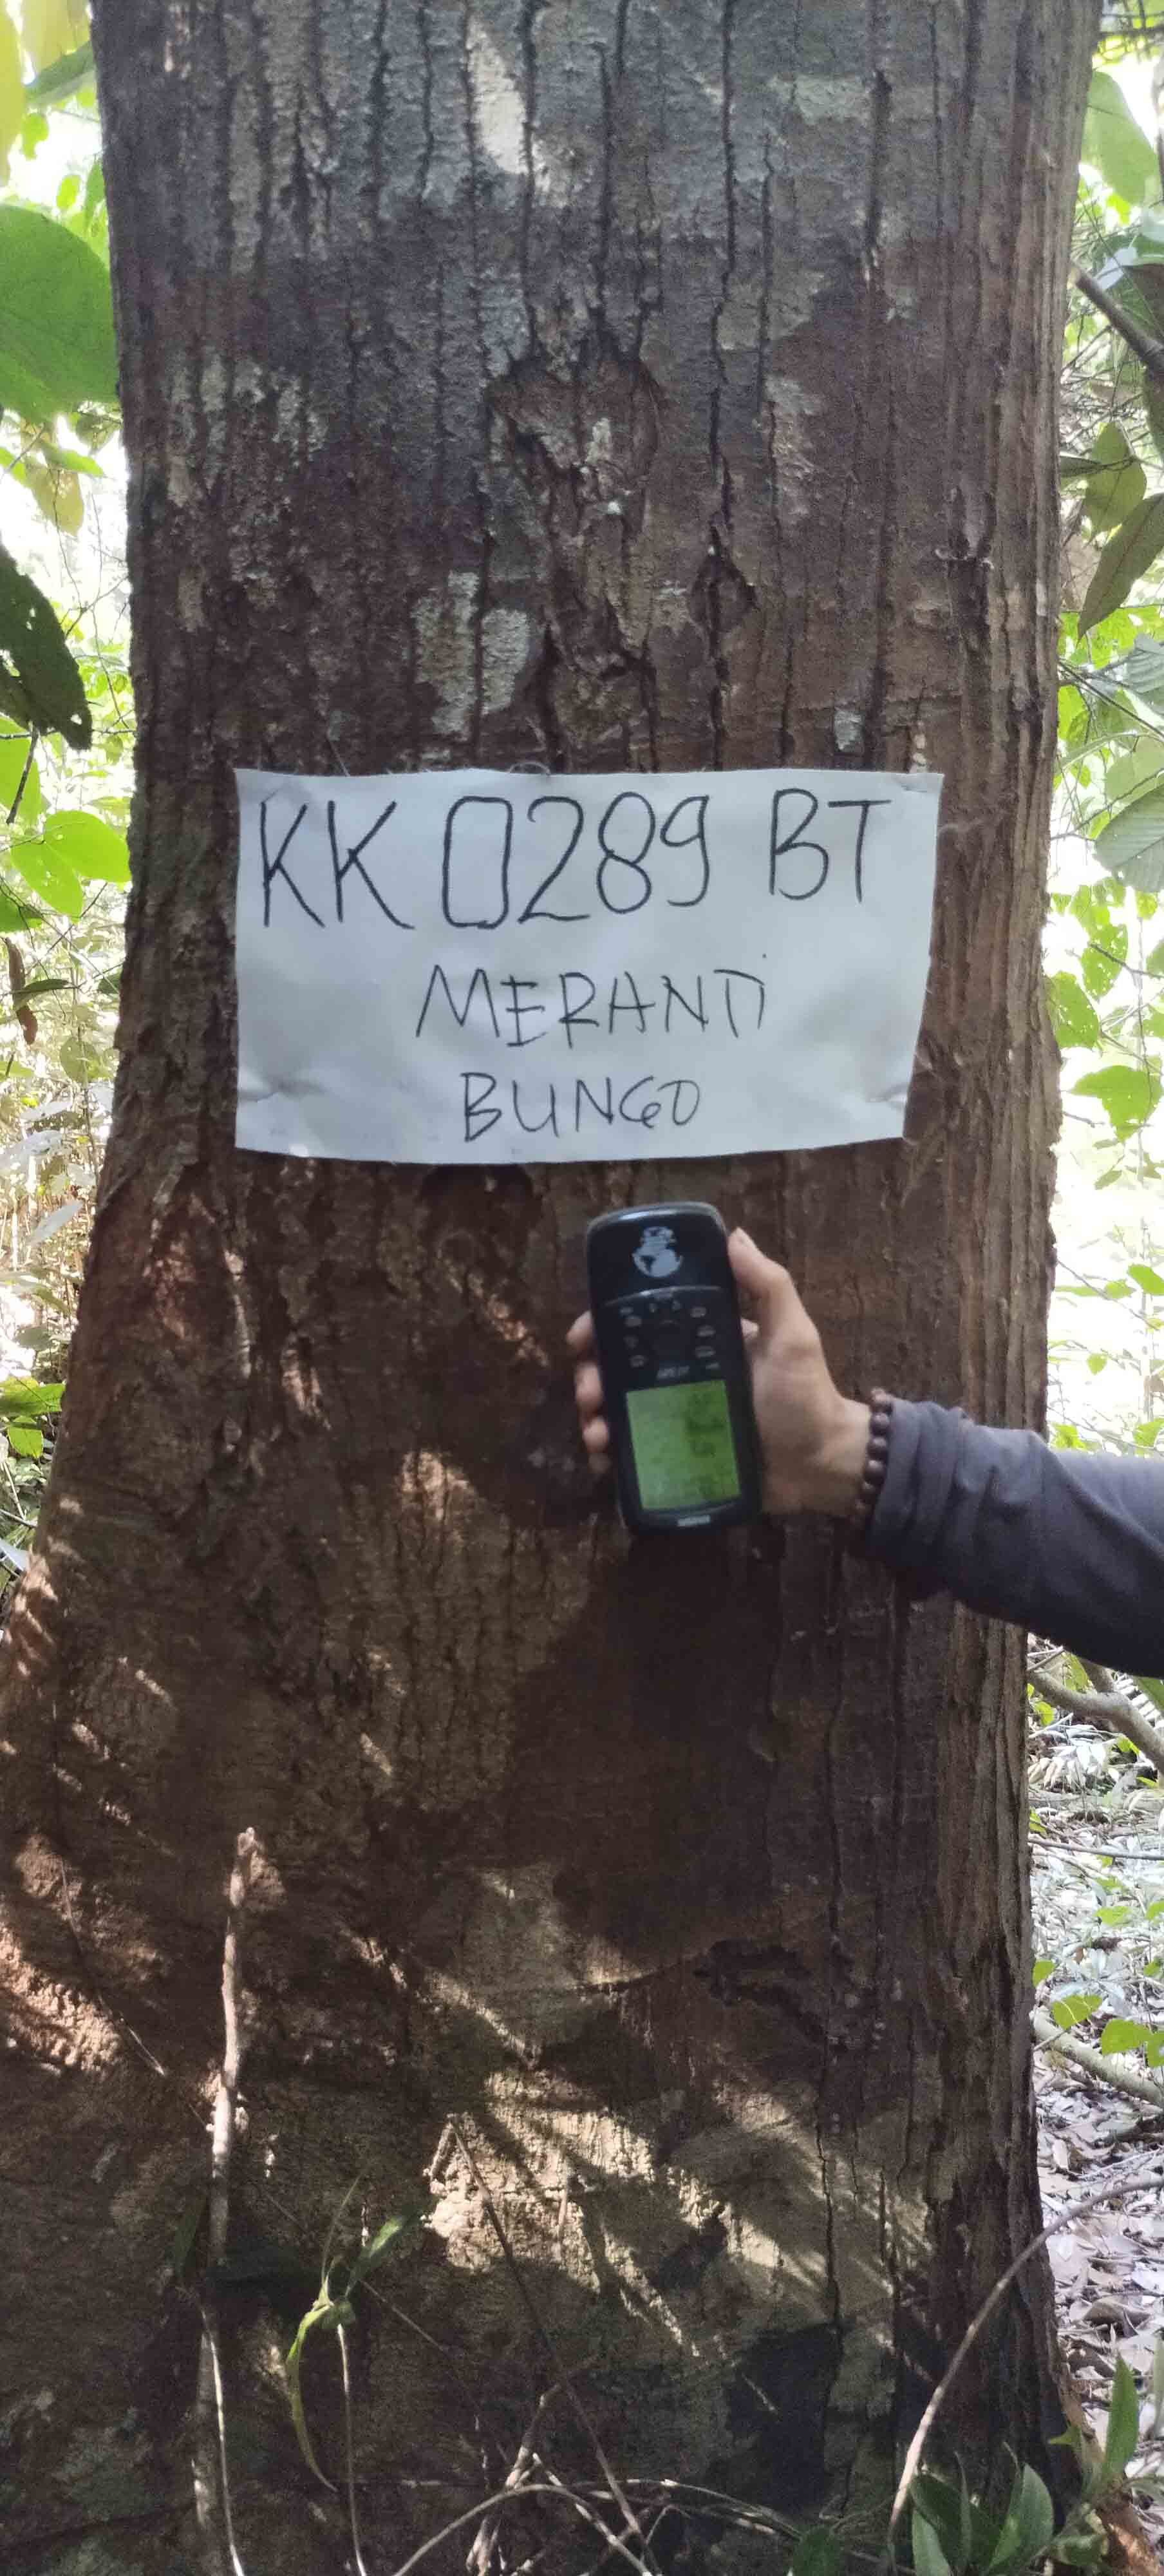 KK 0289 BT
MERANTi
BUNGO